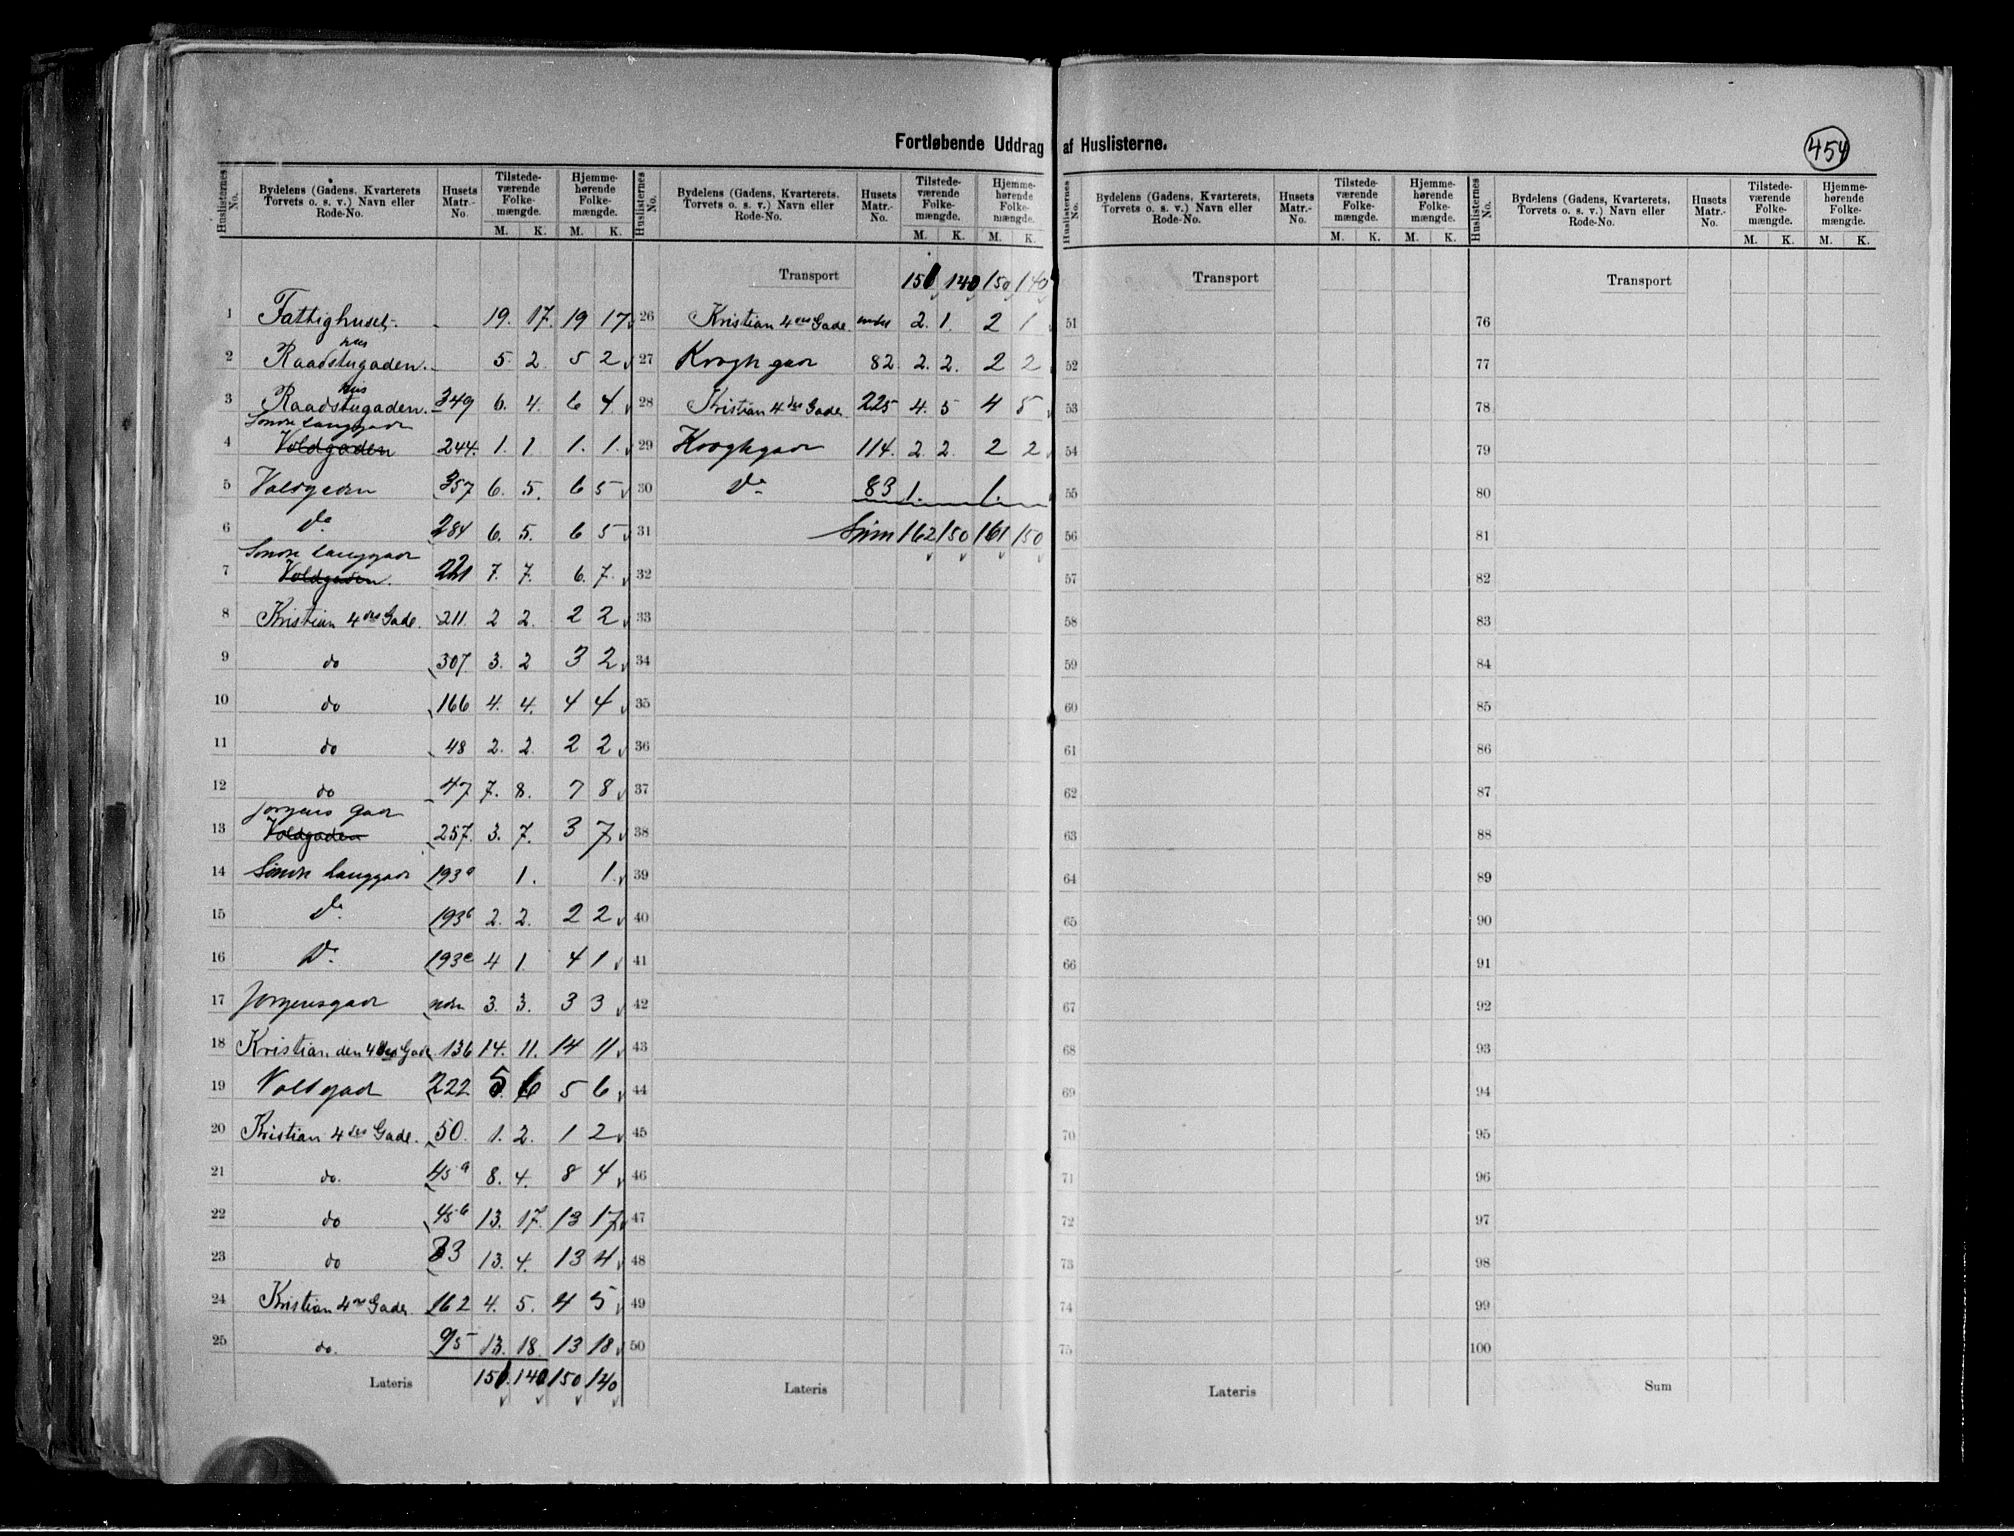 Fortløbende Uddrag af Huslisterne.
454
Huslisternes No. Bydelens (Gadens, Kvarterets Torvets o. s. v.) Navn eller Rode-No. Husets Matr.-No. Tilstede-værende Folke-mængde. Hjemme-hørende Folke-mængde.
M. K. M. K.
1 Fattighuset - 19. 17. 19 17
2 Raadstugaden. hus - 5. 2. 5 2
3 Raadstugaden. hus 349 6. 4. 6 4
4 Søndre Langgade Voldgaden 244. 1. 1 1. 1.
5 Voldgaden 357 6. 5. 6 5
6 do 284 6. 5. 6 5
7 Søndre Langgade Voldgaden. 221 7. 7. 6. 7.
8 Kristian 4des Gade. 211. 2 2. 2 2
9 do 307. 3. 2 3 2
10 do 166 4. 4. 4 4
11 do 48 2. 2. 2 2
12 do 47 7. 8. 7 8
13 Jørgens Gade Voldgaden 257. 3. 7. 3 7
14 Søndre Langgade 193a 1. 1
15 do 193b 2. 2. 2 2
16 do 193c 4 1. 4 1
17 Jørgensgade 3. 3. 3 3
18 Kristian den 4des Gade. 136 14. 11. 14 11
19 Voldgade 222 5. 6 5 6
20 Kristian 4des Gade. 50. 1. 2. 1 2
21 do. 45a 8. 4. 8 4
22 do 45b 13. 17. 13 17
23 do 33 13. 4. 13 4
24 Kristian 4des Gade. 162 4. 5. 4 5
25 do. 95 13. 18. 13 18
Lateris 151. 140 150 140
Huslisternes No. Bydelens (Gadens, Kvarterets, Torvets o. s. v.) Navn eller Rode-No. Husets Matr.-No. Tilstede-værende Folke-mængde. Hjemme-hørende Folke-mængde.
M. K. M. K.
Transport 151 140 150 140
26 Kristian 4des Gade. 2. 1. 2 1
27 Kroghgade 82. 2. 2. 2 2
28 Kristian 4des Gade 225 4. 5 4 5
29 Kroghgade 114. 2. 2. 2 2
30 do 83 1. 1.
31 Sum 162 150 161 150
32
33
34
35
36
37
38
39
40
41
42
43
44
45
46
47
48
49
50
Lateris
Huslisternes No. Bydelens (Gadens, Kvarterets, Torvets o. s. v.) Navn eller Rode-No. Husets Matr.-No. Tilstede-værende Folke-mængde. Hjemme-hørende Folke-mængde.
M. K. M. K.
Transport
51
52
53
54
55
56
57
58
59
60
61
62
63
64
65
66
67
68
69
70
71
72
73
74
75
Lateris
Huslisternes No. Bydelens (Gadens, Kvarterets, Torvets o. s. v.) Navn eller Rode-No. Husets Matr.-No. Tilstede-værende Folke-mængde. Hjemme-hørende Folke-mængde.
M. K. M. K.
Transport
76
77
78
79
80
81
82
83
84
85
86
87
88
89
90
91
92
93
94
95
96
97
98
99
100
Sum